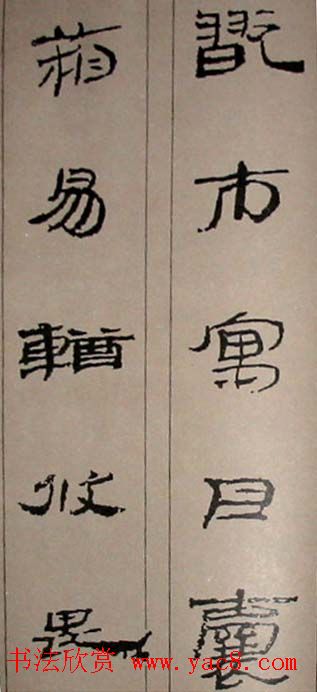 翫市寓目囊
箱易輶攸畏
书法欣赏 www.yac8.com